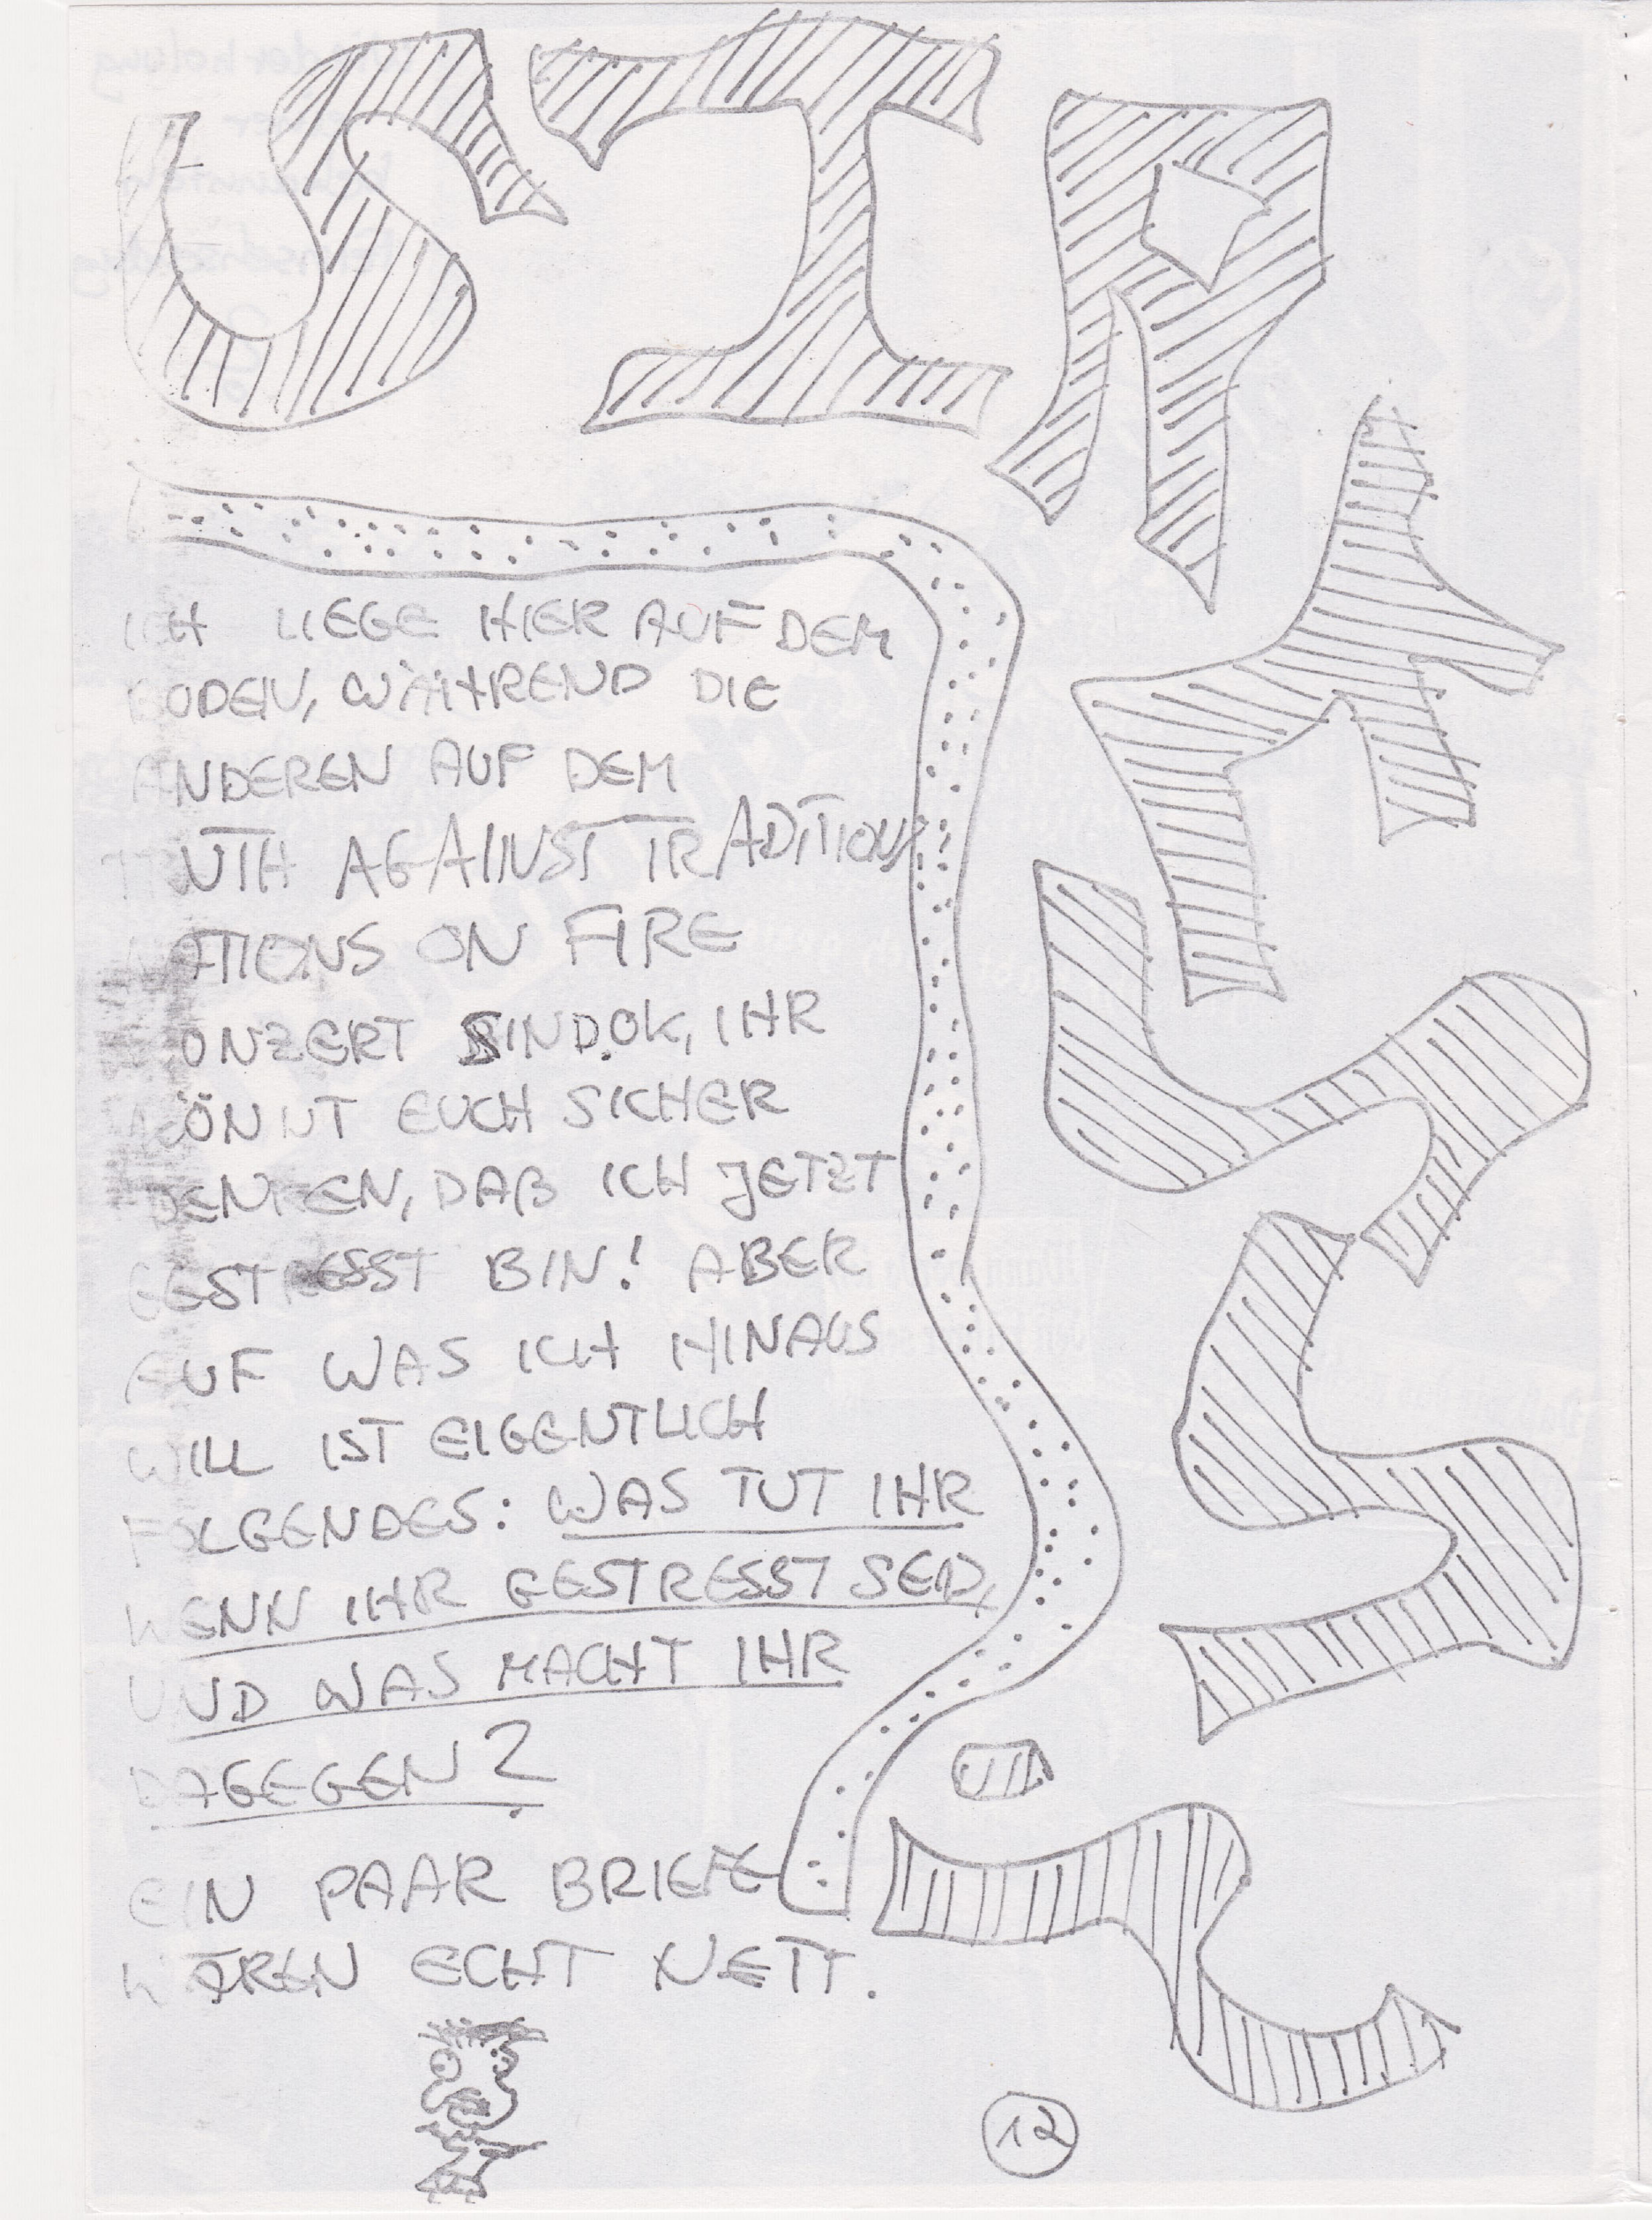 STRESS?
ICH LIEGE HIER AUF DEM
BODEN, WÄHREND DIE
ANDEREN AUF DEM
UTH AGAINST TRADITION/
ATIONS ON FIRE
KONZERT SIND. OK, IHR
KÖNNT EUCH SICHER
DENKEN, DAß ICH JETZT
GESTRESST BIN! ABER
AUF WAS ICH HINAUS
WILL IST EIGENTLICH
FOLGENDES: WAS TUT IHR
WENN IHR GESTRESST SEID,
UND WAS MACHT IHR
DAGEGEN?
EIN PAAR BRIEFE
WÄREN ECHT NETT.
12